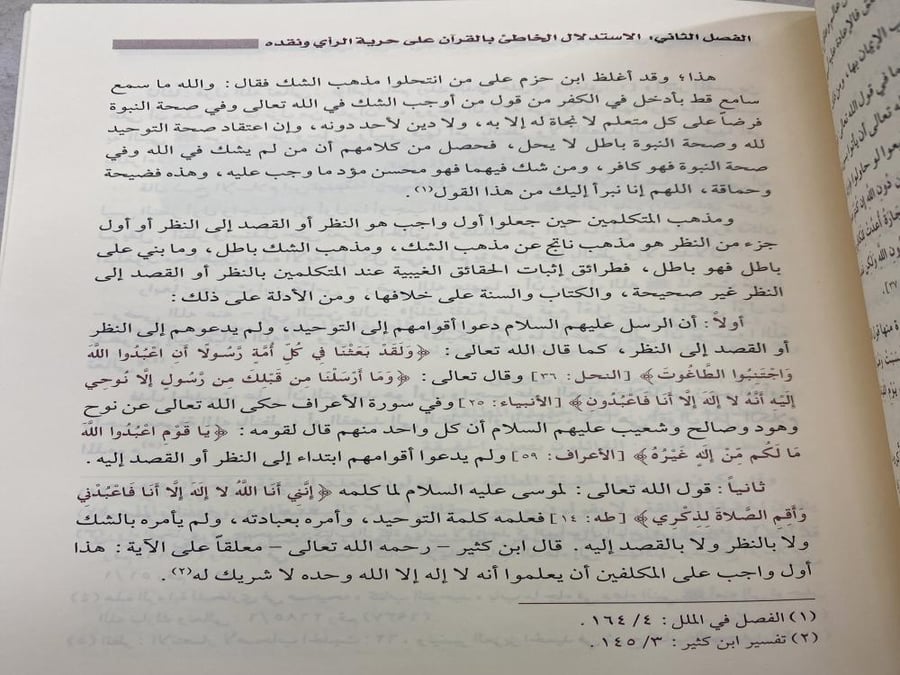 الفصل الثاني، الاستدلال الخاطئ بالقرآن على حرية الرأي ونقده
هذا؛ وقد أغلظ ابن حزم على من انتحلوا مذهب الشك فقال: والله ما سمع
سامع قط بأدخل في الكفر من قول من أوجب الشك في الله تعالى وفي صحة النبوة
فرضاً على كل متعلم لا نجاة له إلا به، ولا دين لأحد دونه، وإن اعتقاد صحة التوحيد
لله وصحة النبوة باطل لا يحل، فحصل من كلامهم أن من لم يشك في الله وفي
صحة النبوة فهو كافر، ومن شك فيهما فهو محسن مؤد ما وجب عليه، وهذه فضيحة
وحماقة، اللهم إنا نبرأ إليك من هذا القول(١).
ومذهب المتكلمين حين جعلوا أول واجب هو النظر أو القصد إلى النظر أو أول
جزء من النظر هو مذهب ناتج عن مذهب الشك، ومذهب الشك باطل، وما بني على
باطل فهو باطل، فطرائق إثبات الحقائق الغيبية عند المتكلمين بالنظر أو القصد إلى
النظر غير صحيحة، والكتاب والسنة على خلافها، ومن الأدلة على ذلك:
أولاً: أن الرسل عليهم السلام دعوا أقوامهم إلى التوحيد، ولم يدعوهم إلى النظر
أو القصد إلى النظر، كما قال الله تعالى: ﴿وَلَقَدْ بَعَثْنَا فِي كُلِّ أُمَّةٍ رَّسُولًا أَنِ اعْبُدُوا اللَّهَ
وَاجْتَنِبُوا الطَّاغُوتَ﴾ [النحل: ٣٦] وقال تعالى: ﴿وَمَا أَرْسَلْنَا مِن قَبْلِكَ مِن رَّسُولٍ إِلَّا نُوحِي
إِلَيْهِ أَنَّهُ لا إِلَهَ إِلَّا أَنَا فَاعْبُدُونِ﴾ [الأنبياء: ٢٥] وفي سورة الأعراف حكى الله تعالى عن نوح
وهود وصالح وشعيب عليهم السلام أن كل واحد منهم قال لقومه: ﴿يَا قَوْمِ اعْبُدُوا اللَّهَ
مَا لَكُم مِّنْ إِلَهٍ غَيْرُهُ﴾ [الأعراف: ٥٩] ولم يدعوا أقوامهم ابتداء إلى النظر أو القصد إليه.
ثانياً: قول الله تعالى: لموسى عليه السلام لما كلمه ﴿إِنَّنِي أَنَا اللَّهُ لا إِلَهَ إِلَّا أَنَا فَاعْبُدْنِي
وَأَقِمِ الصَّلاةَ لِذِكْرِي﴾ [طه: ١٤] فعلمه كلمة التوحيد، وأمره بعبادته، ولم يأمره بالشك
ولا بالنظر ولا بالقصد إليه. قال ابن كثير - رحمه الله تعالى - معلقاً على الآية: هذا
أول واجب على المكلفين أن يعلموا أنه لا إله إلا الله وحده لا شريك له(٢).
(١) الفصل في الملل: ٤/ ١٦٤.
(٢) تفسير ابن كثير: ٣/ ١٤٥.